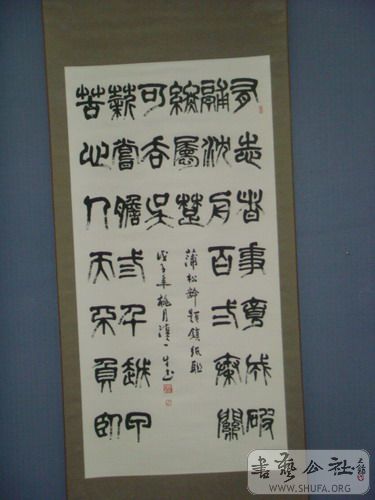 有志者事竟成破
鬴沈舟百弍秦關
終屬楚
苦心人天不負臥
薪嘗膽弎千越甲
可吞吳
蒲松齡題鎮紙聯
戊子年桃月
書藝公社
WWW.SHUFA.ORG